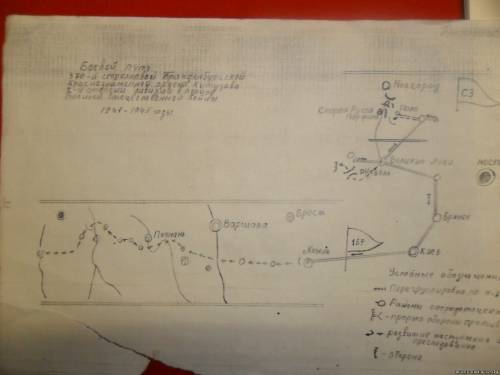 Боевой путь
370-й стрелковой Бранденбургской
Краснознаменной ордена Кутузова
2-й степени дивизии в годы
Великой Отечественной войны
1941-1945 годы
Новгород
Старая Русса
Великие Луки
Брянск
Киев
Ковель
169
СЗ
Брест
Варшава
Познань
Условные обозначения
Перегруппировка по
Районы сосредоточения
прорыв обороны
развитие наступления и
преследование
оборона